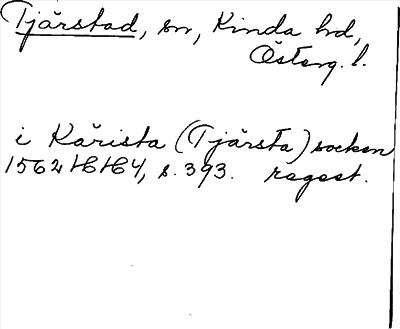 Tjärstad, sn, Kinda hd,
Österg. l.
i Kärista (Tjärsta) socken
1562 HH4, s. 393. regest.